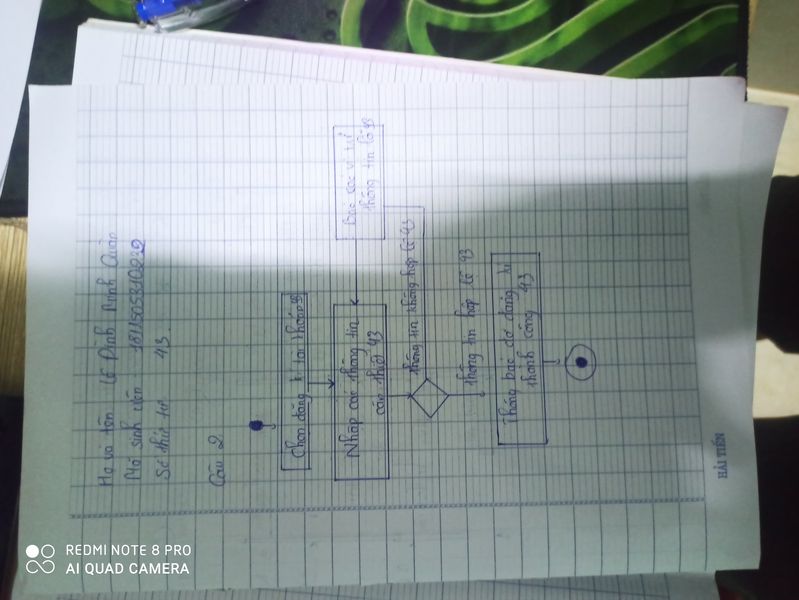 Họ và tên Lê Đình Minh Quân
Mã sinh viên 1811505310232
Số thứ tự 43.
Câu 2
Chọn đăng kí tài khoản 43
Nhập các thông tin
cần thiết 43
Báo các vị trí
thông tin lỗi 43
thông tin không hợp lệ 43
thông tin hợp lệ 43
Thông báo đã đăng kí
thành công 43
HẢI TIẾN
REDMI NOTE 8 PRO
AI QUAD CAMERA